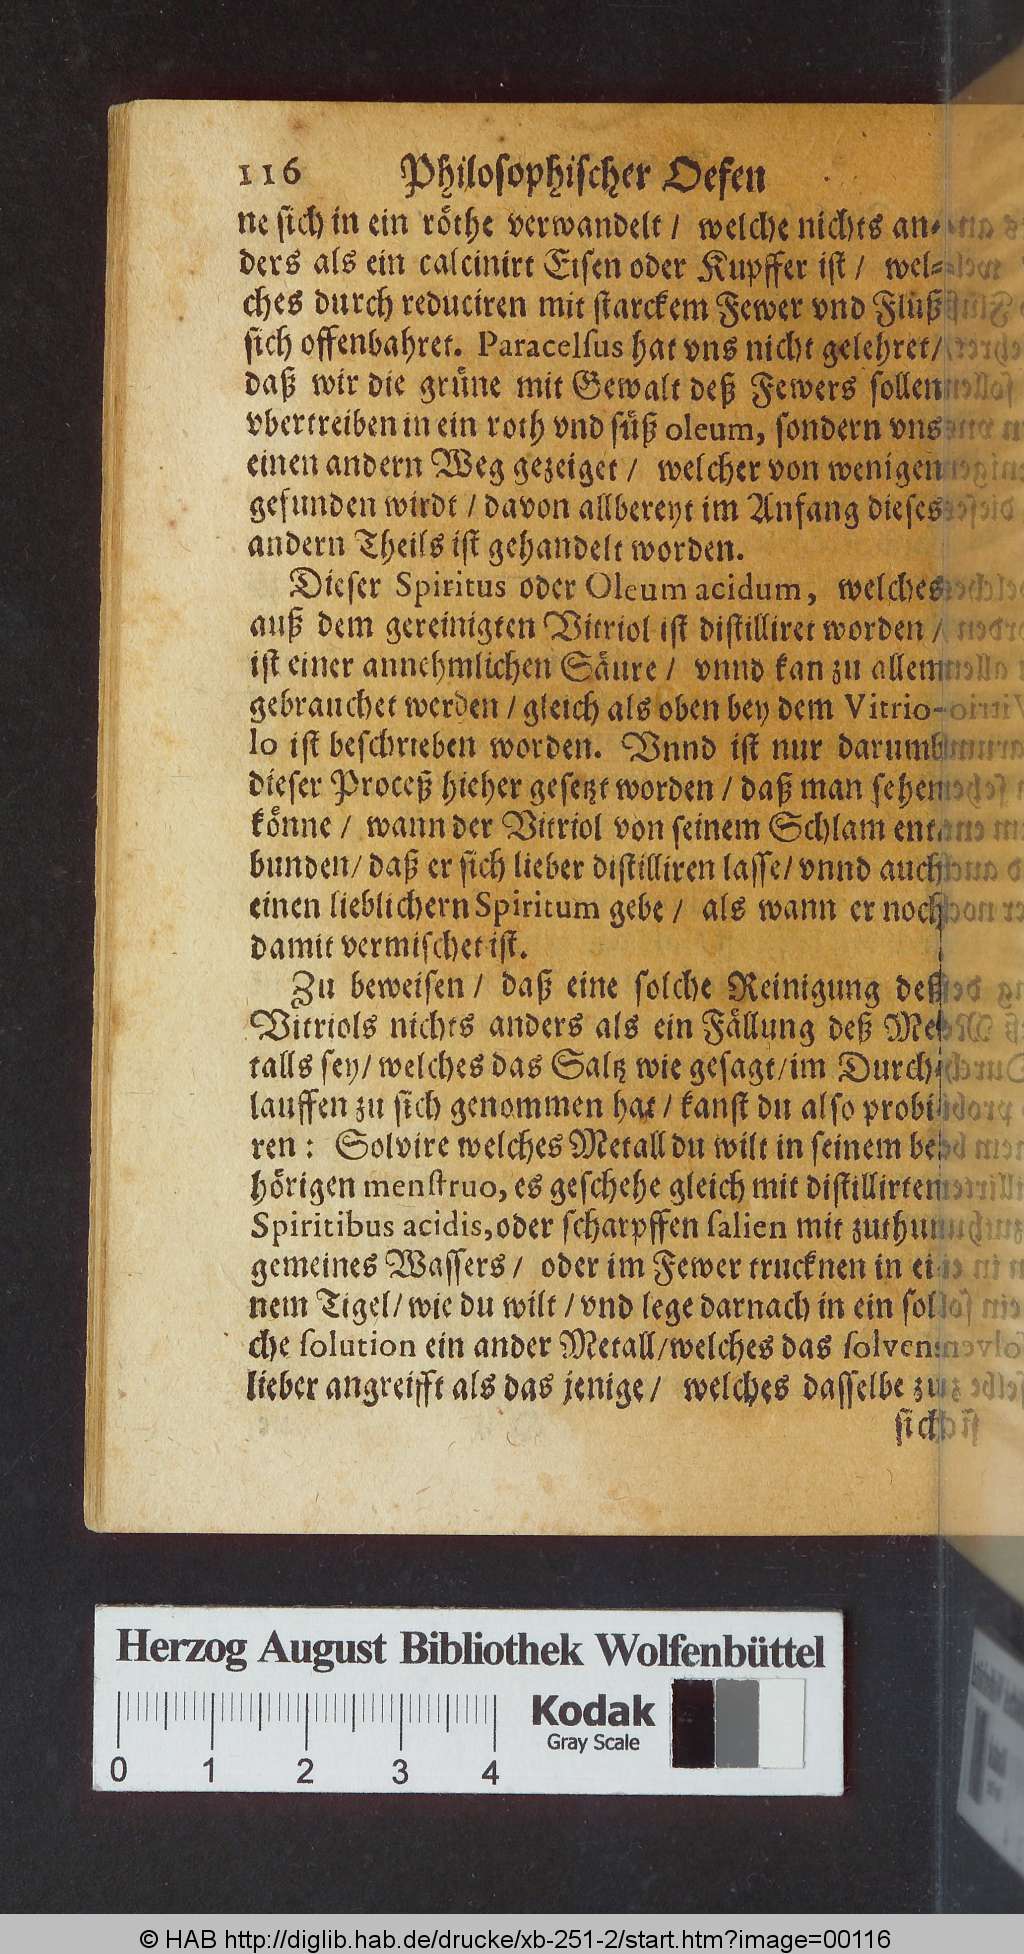 116 Philosophischer Oefen
ne sich in ein röthe verwandelt / welche nichts an-
ders als ein calcinirt Eisen oder Kupffer ist / wel-
ches durch reduciren mit starckem Fewer vnd Fluß
sich offenbahret. Paracelsus hat vns nicht gelehret/
daß wir die grüne mit Gewalt deß Fewers sollen
vbertreiben in ein roth vnd süß oleum, sondern vns
einen andern Weg gezeiget / welcher von wenigen
gefunden wirdt / davon allbereyt im Anfang dieses
andern Theils ist gehandelt worden.
Dieser Spiritus oder Oleum acidum, welches
auß dem gereinigten Vitriol ist distilliret worden /
ist einer annehmlichen Säure / vnnd kan zu allem
gebrauchet werden / gleich als oben bey dem Vitrio-
lo ist beschrieben worden. Vnnd ist nur darumb
dieser Proceß hieher gesetzt worden / daß man sehen
könne / wann der Vitriol von seinem Schlam ent-
bunden / daß er sich lieber distilliren lasse / vnnd auch
einen lieblichern Spiritum gebe / als wann er noch
damit vermischet ist.
Zu beweisen / daß eine solche Reinigung deß
Vitriols nichts anders als ein Fällung deß Me-
talls sey / welches das Saltz wie gesagt / im Durch-
lauffen zu sich genommen hat / kanst du also probi-
ren : Solvire welches Metall du wilt in seinem be-
hörigen menstruo, es geschehe gleich mit distillirten
Spiritibus acidis, oder scharpffen salien mit zuthun
gemeines Wassers / oder im Fewer trucknen in ei-
nem Tigel / wie du wilt / vnd lege darnach in ein sol-
che solution ein ander Metall / welches das solvens
lieber angreifft als das jenige / welches dasselbe zu
sich
Herzog August Bibliothek Wolfenbüttel
Kodak
Gray Scale
0 1 2 3 4
© HAB http://diglib.hab.de/drucke/xb-251-2/start.htm?image=00116